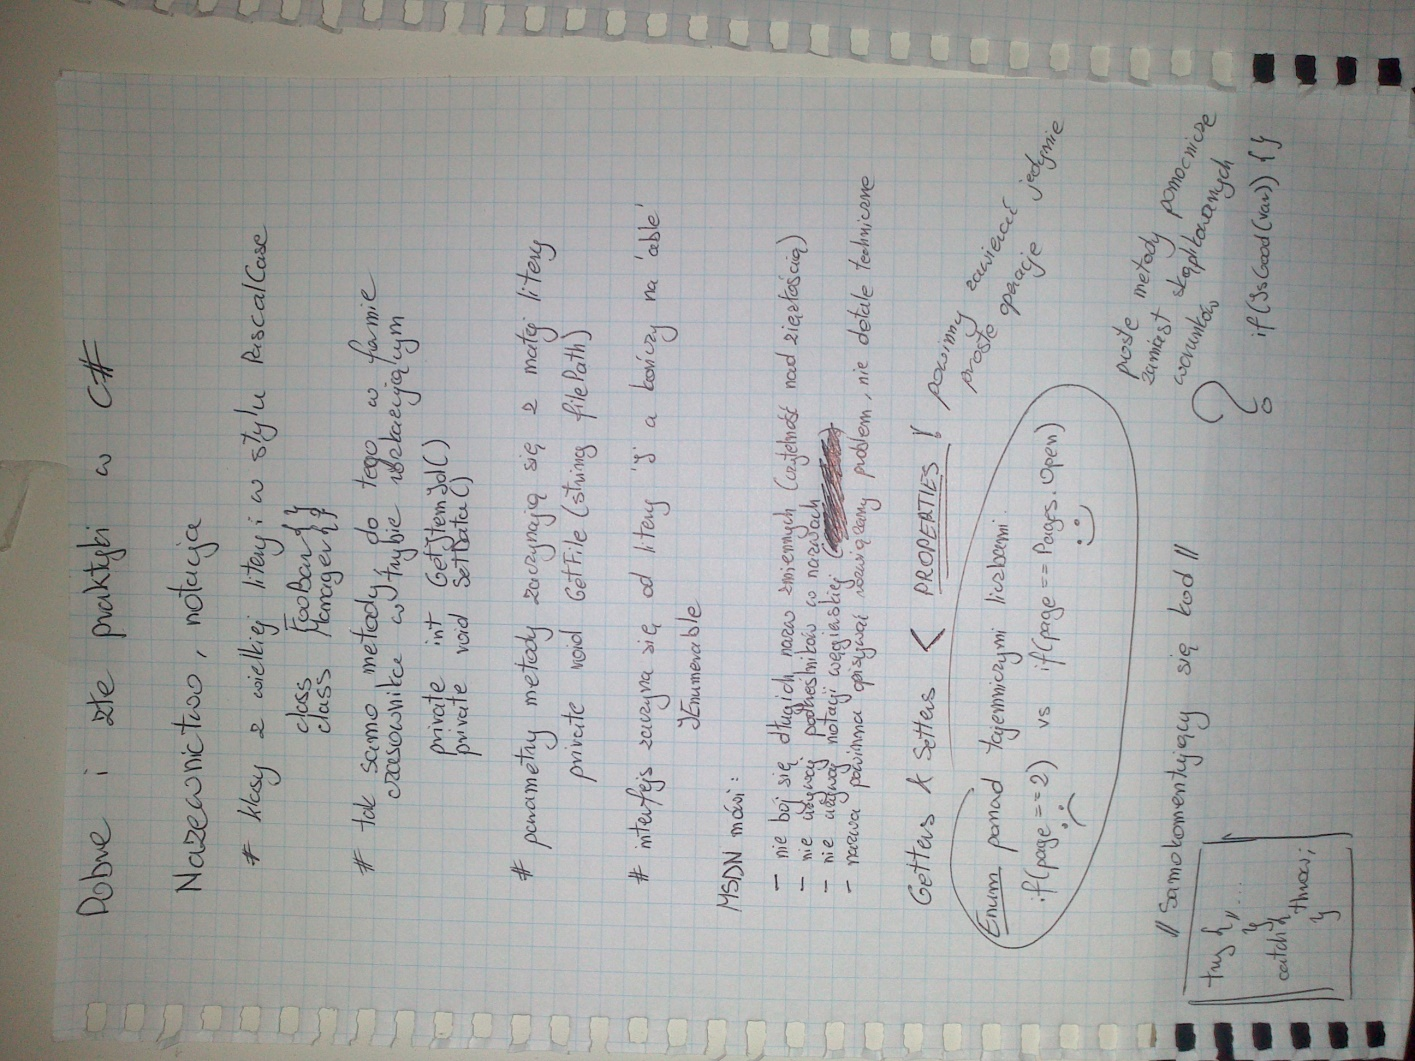 Dobre i złe praktyki w C#
Nazewnictwo, notacja
# klasy z wielkiej litery i w stylu PascalCase
class FooBar { }
class Manager { }
# tak samo metody, do tego w formie
czasownika w trybie rozkazującym
private int GetItemId()
private void SetData()
# parametry metody zaczynają się z małej litery
private void GetFile(string filePath)
# interfejs zaczyna się od litery 'I' a kończy na 'able'
IEnumerable
MSDN mówi:
- nie bój się długich nazw zmiennych (czytelność nad zięzłością)
- nie używaj podkreślników w nazwach
- nie używaj notacji węgierskiej
- nazwa powinna opisywać rozwiązany problem, nie detale techniczne
Getters & Setters < PROPERTIES!
powinny zawierać jedynie
proste operacje
Enum ponad tajemniczymi liczbami.
if(page==2) vs if(page==Pages.Open)
:( :)
// Samokomentujący się kod //
proste metody pomocnicze
zamiast skąplikowanych
warunków
? if(IsGood(var)) { }
try {
//...
}
catch {
throw;
}